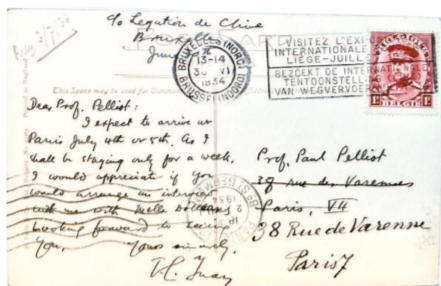 c/o Legation de Chine
Bruxelles
June
BRUXELLES (NORD)
13-14
30 VI
1934
BRUSSEL (NOORD)
VISITEZ L'EXPO
INTERNATIONALE
LIÈGE-JUILL
BEZOEKT DE INTERNAT
TENTOONSTELL
VAN WEGVERVOER
BELGIE
Dear Prof. Pelliot:
I expect to arrive in
Paris July 4th or 5th. As I
shall be staying only for a week,
I would appreciate if you
would arrange an interview
with me with
Looking forward to seeing
you,
Yours sincerely,
Prof. Paul Pelliot
38 rue des Varennes
Paris, VII
38 Rue de Varenne
Paris 7